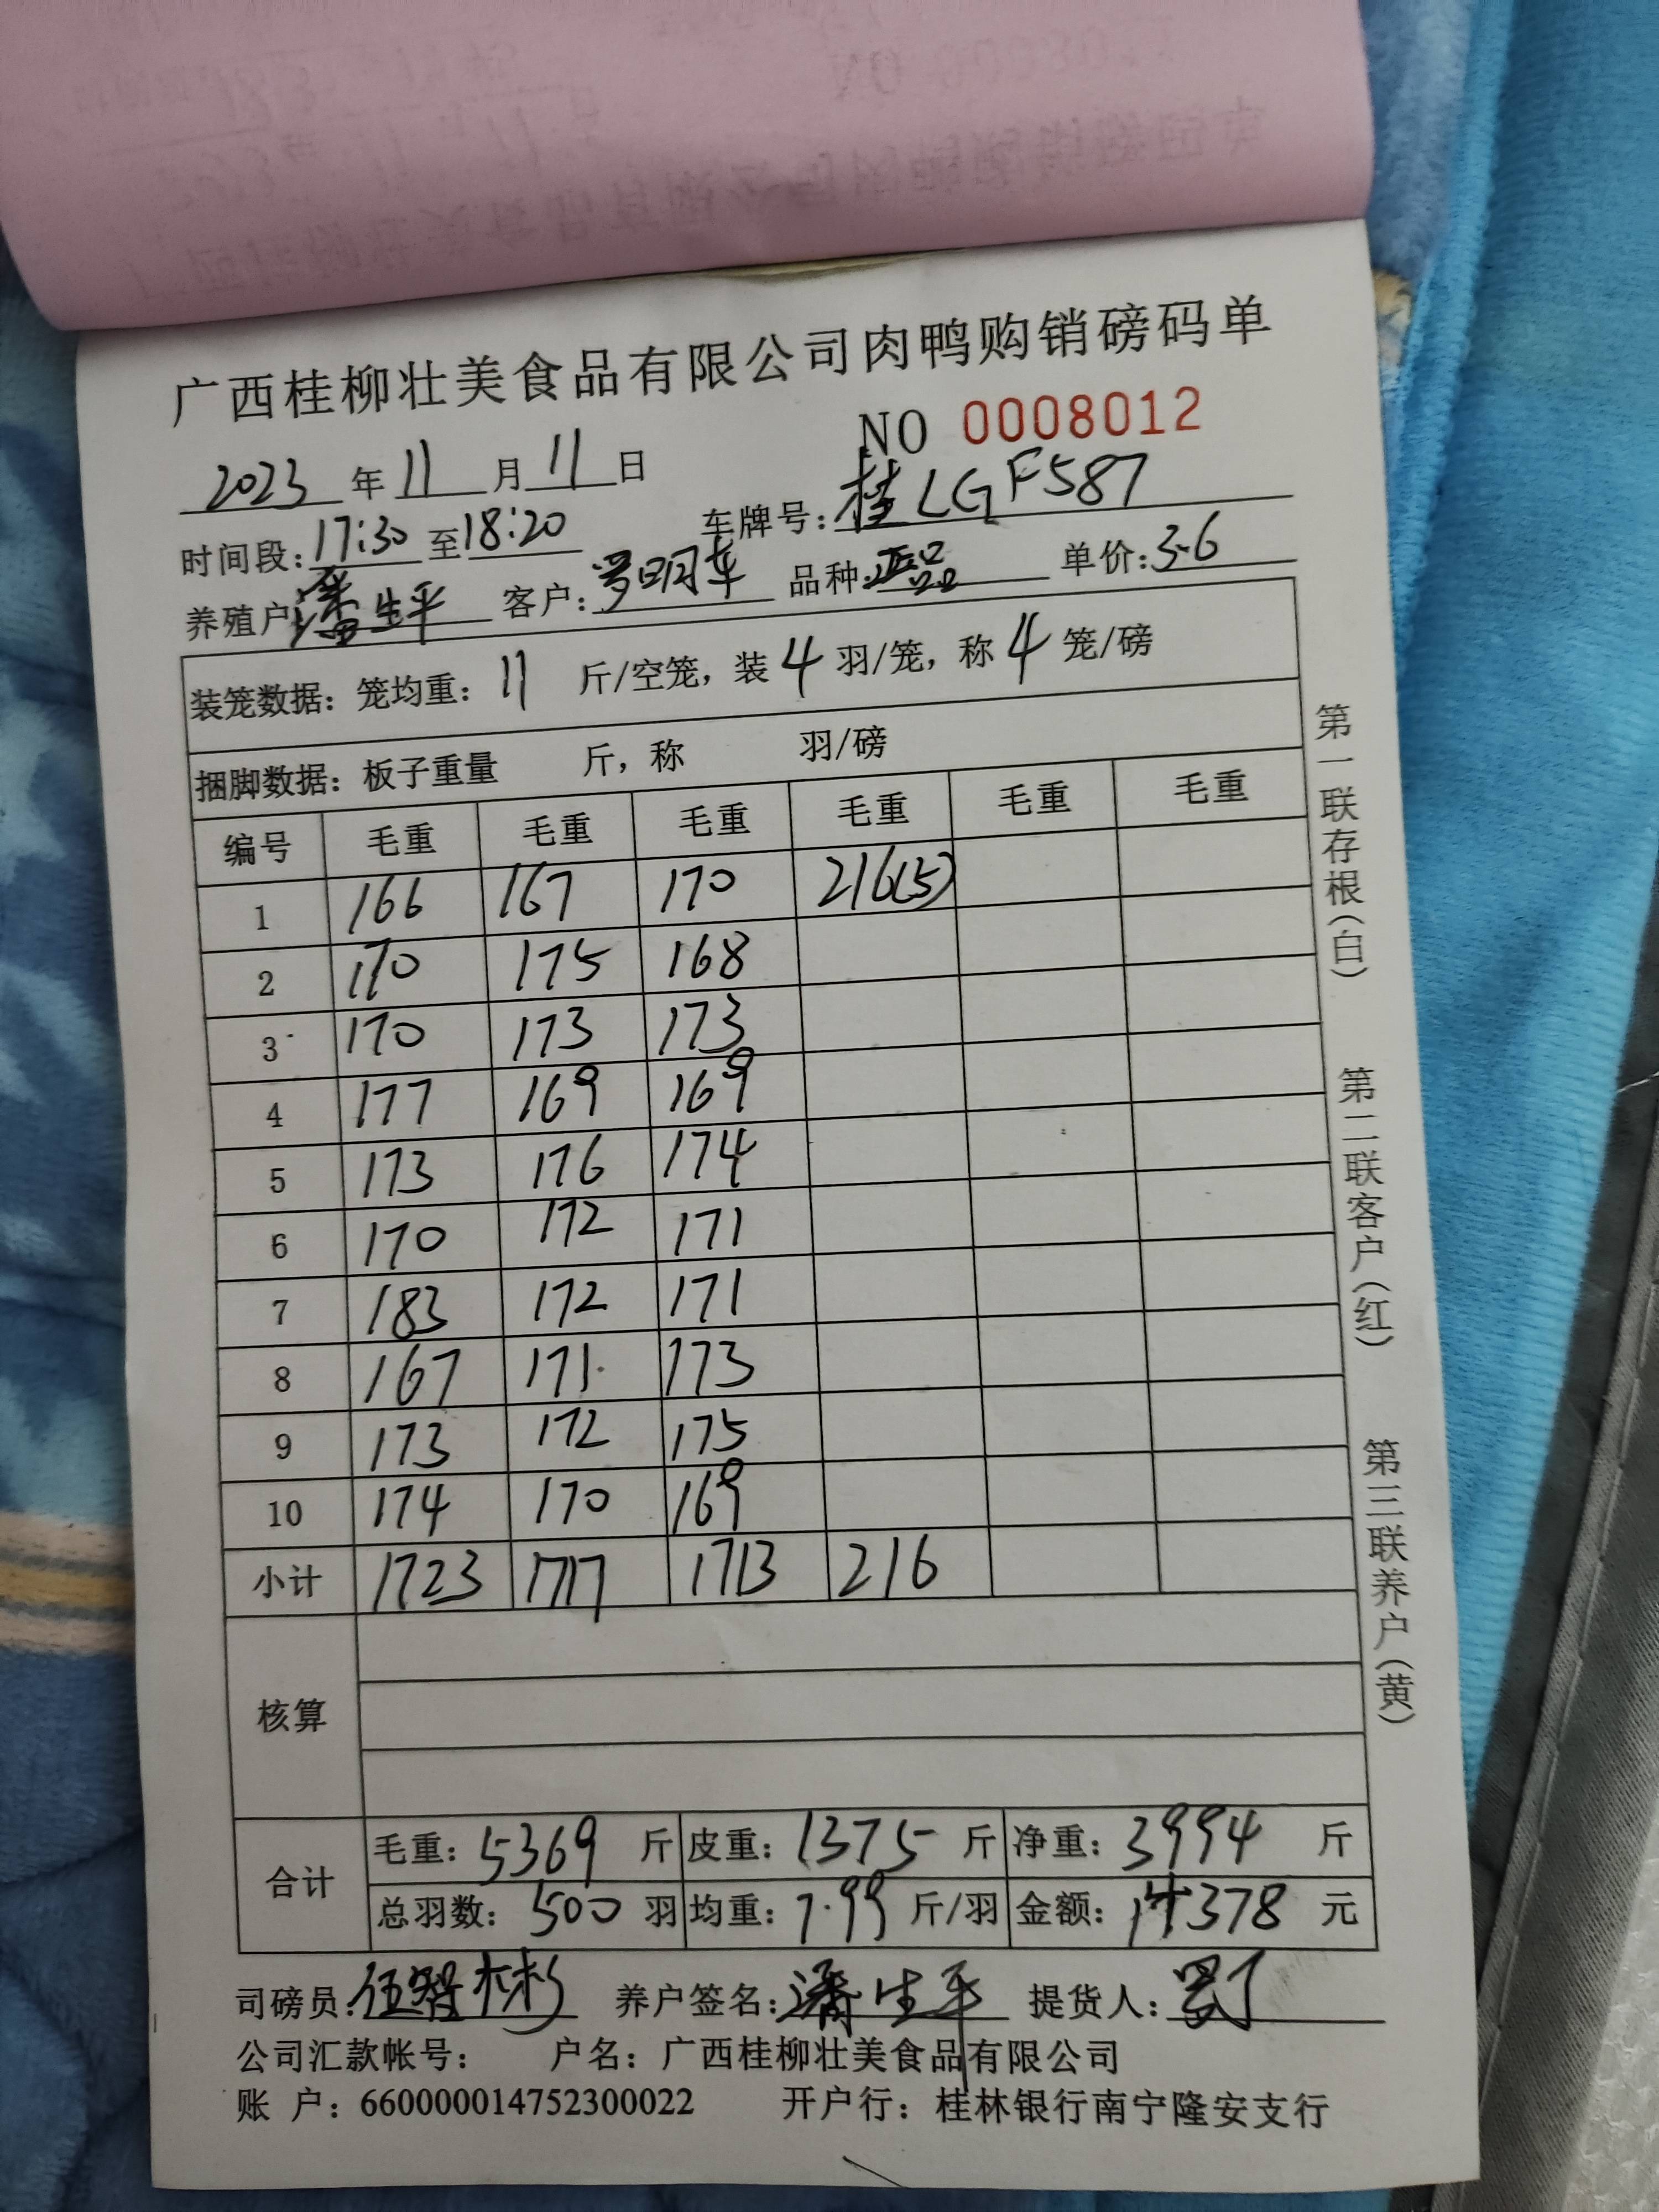 广西桂柳壮美食品有限公司肉鸭购销磅码单
NO 0008012
2023年11月11日
车牌号:桂LGF587
时间段:17:30至18:20
养殖户:潘生平 客户:罗明车 品种:正品 单价:3.6
装笼数据:笼均重:11斤/空笼,装4羽/笼,称4笼/磅
捆脚数据:板子重量 斤,称 羽/磅
编号 毛重 毛重 毛重 毛重 毛重 毛重
1 166 167 170 216(5)
2 170 175 168
3 170 173 173
4 177 169 169
5 173 176 174
6 170 172 171
7 183 172 171
8 167 171 173
9 173 172 175
10 174 170 169
小计 1723 1717 1713 216
核算
合计
毛重:5369斤 皮重:1375斤 净重:3994斤
总羽数:500羽 均重:7.99斤/羽 金额:14378元
司磅员: 养户签名:潘生平 提货人:
公司汇款帐号: 户名:广西桂柳壮美食品有限公司
账 户:660000014752300022 开户行:桂林银行南宁隆安支行
第一联存根(白) 第二联客户(红) 第三联养户(黄)